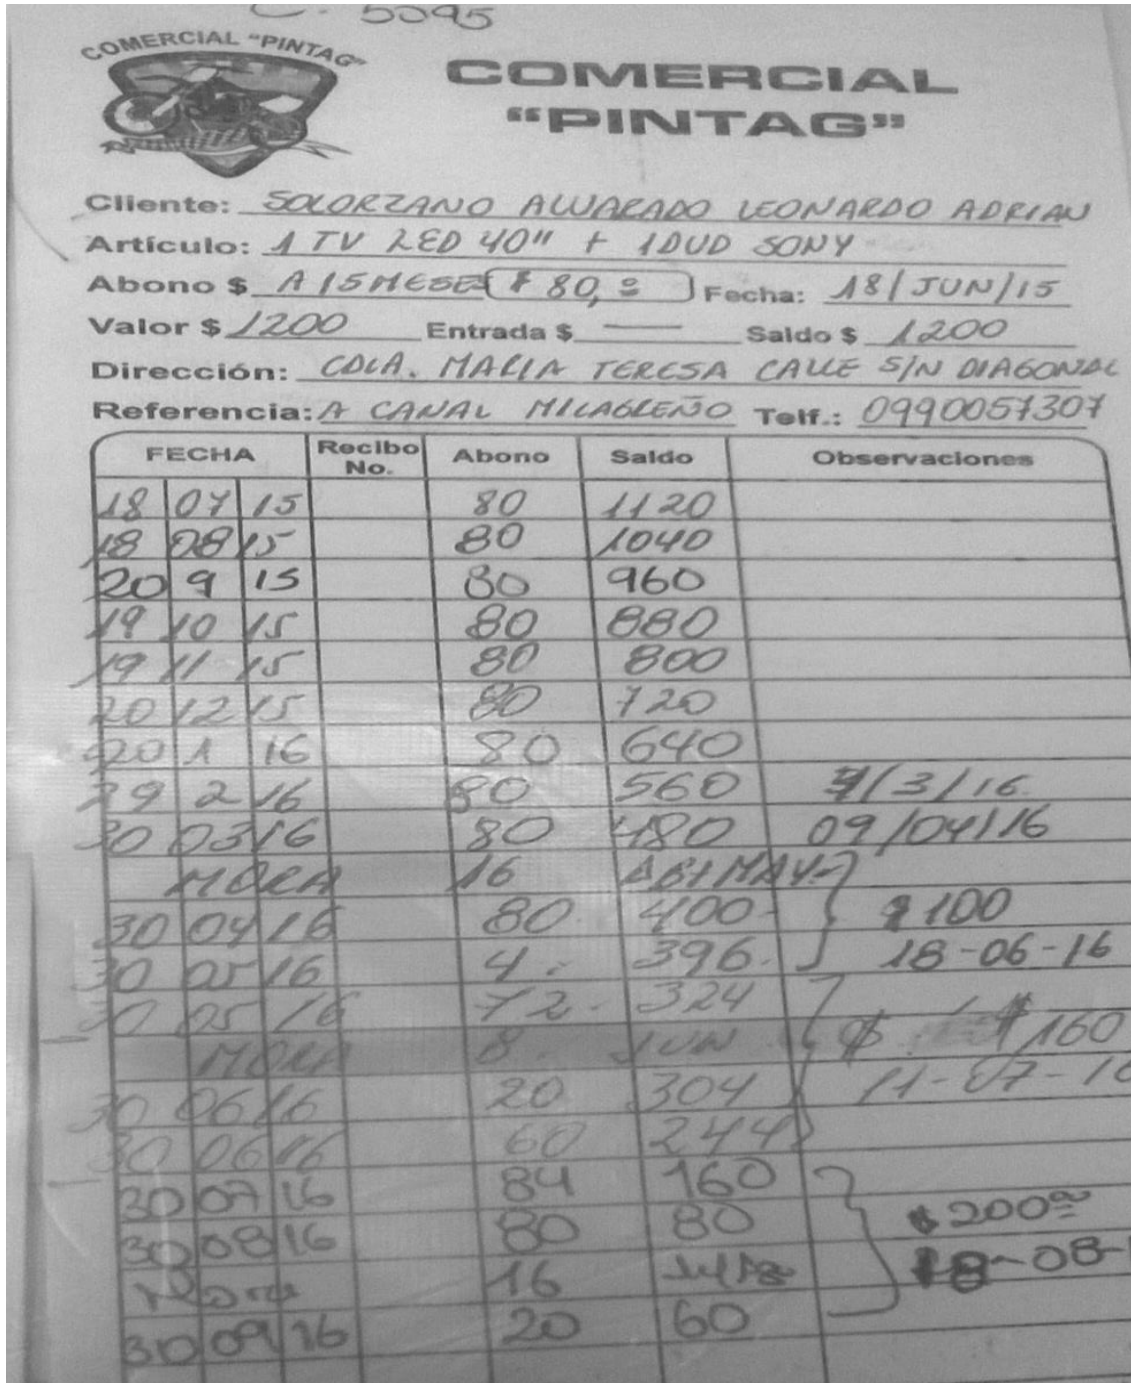 C. 5595
COMERCIAL "PINTAG"
COMERCIAL
"PINTAG"
Cliente: SOLORZANO ALVARADO LEONARDO ADRIAN
Artículo: 1 TV LED 40" + 1 DVD SONY
Abono $ A 15 MESES $ 80,00 Fecha: 18/JUN/15
Valor $ 1200 Entrada $ — Saldo $ 1200
Dirección: CDLA. MARIA TERESA CALLE S/N DIAGONAL
Referencia: A CANAL MILAGREÑO Telf.: 0990057307
FECHA Recibo No. Abono Saldo Observaciones
18 07 15 80 1120
18 08 15 80 1040
20 9 15 80 960
19 10 15 80 880
19 11 15 80 800
20 12 15 80 720
20 1 16 80 640
29 2 16 80 560 /3/16
30 03 16 80 480 09/04/16
MORA 16 ABI MAY-
30 04 16 80 400- $100
30 05 16 4- 396- 18-06-16
30 05 16 72- 324
MORA 8 JUN $ $160
30 06 16 20 304 11-07-16
30 06 16 60 244
30 07 16 84 160
30 08 16 80 80 $200
Mora 16 18-08-
30 09 16 20 60